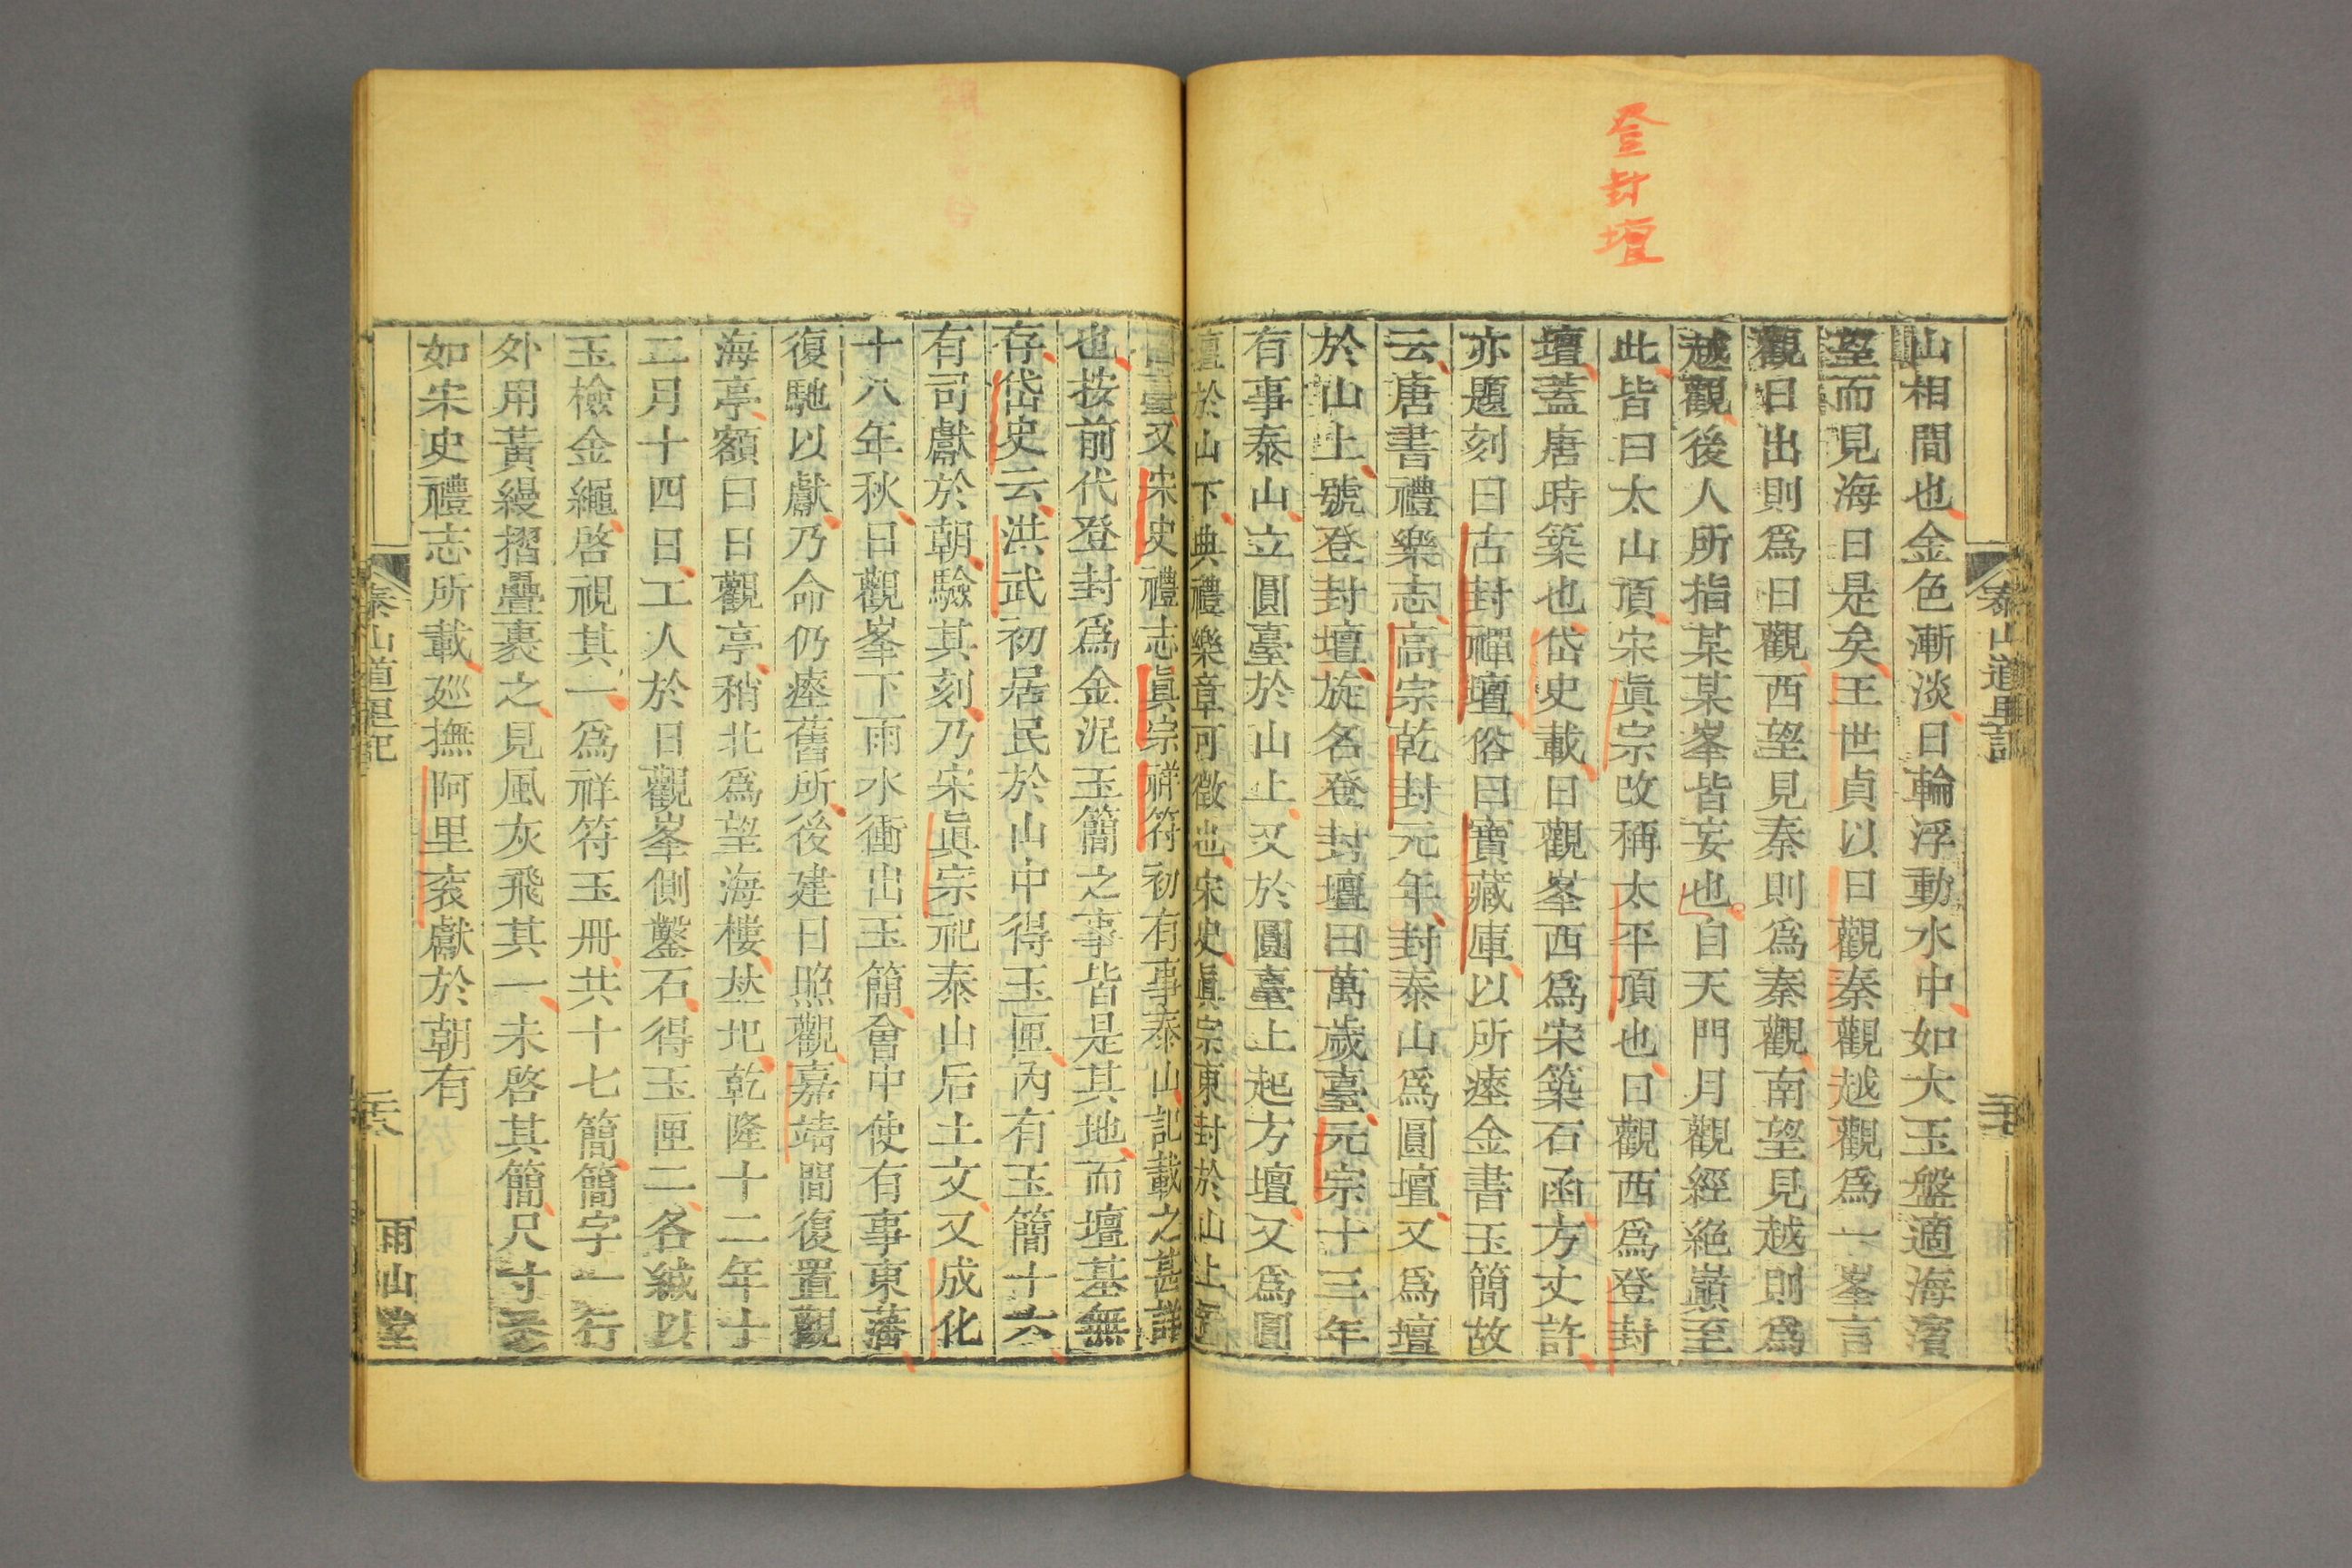 登封壇
泰山道里記
山相間也金色漸淡日輪浮動水中如大玉盤適海濱
望而見海日是矣王世貞以日觀秦觀越觀為一峯言
觀日出則爲日觀西望見秦則爲秦觀南望見越則爲
越觀後人所指某某峯皆妄也自天門月觀經絶巔至
此皆曰太山頂宋眞宗改稱太平頂也日觀西爲登封
壇蓋唐時築也岱史載日觀峯西爲宋築石函方丈許
亦題刻曰古封禪壇俗曰寶藏庫以所瘞金書玉簡故
云唐書禮樂志高宗乾封元年封泰山爲圓壇又爲壇
於山上號登封壇旋名登封壇曰萬歲臺元宗十三年
有事泰山立圓臺於山上又於圓臺上起方壇又爲圓
壇於山下典禮樂章可徵也宋史眞宗東封於山上置
臺又宋史禮志眞宗祥符初有事泰山記載之甚詳
也按前代登封爲金泥玉簡之事皆是其地而壇基無
存岱史云洪武初居民於山中得玉匣內有玉簡十六
有司獻於朝驗其刻乃宋眞宗祀泰山后土文又成化
十八年秋日觀峯下雨水衝出玉簡會中使有事東藩
復馳以獻乃命仍瘞舊所後建日照觀嘉靖間復置觀
海亭額曰日觀亭稍北爲望海樓基圯乾隆十二年十
二月十四日工人於日觀峯側鑿石得玉匣二各緘以
玉檢金繩啓視其一爲祥符玉冊共十七簡簡字一行
外用黃縵摺疊裹之見風灰飛其一未啓其簡尺寸悉
如宋史禮志所載廵撫阿里袞獻於朝有
泰山道里記
二六
雨山堂